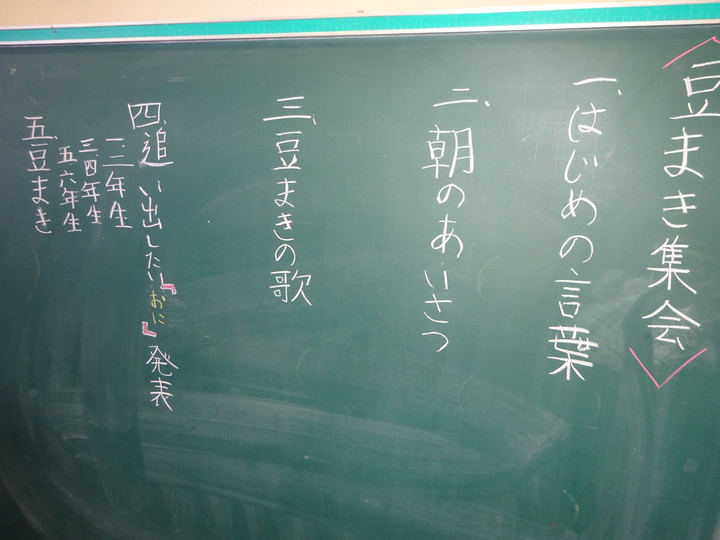 〈豆まき集会〉
一、はじめの言葉
二、朝のあいさつ
三、豆まきの歌
四、追い出したい「おに」発表
一・二年生
三・四年生
五・六年生
五、豆まき